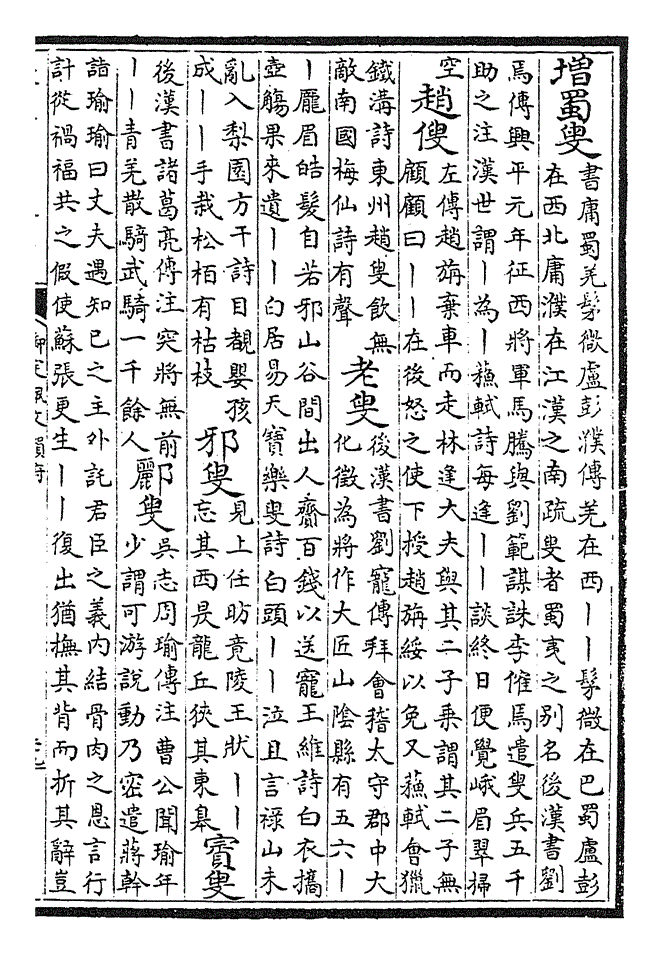 増蜀叟
書庸蜀羌髳微盧彭濮傳羌在西丨丨髳微在巴蜀盧彭
在西北庸濮在江漢之南疏叟者蜀夷之别名後漢書劉
焉傳興平元年征西將軍馬騰與劉範謀誅李傕焉遣叟兵五千
助之注漢世謂丨為丨蘇軾詩每逢丨丨談終日便覺峨眉翠掃
空
趙傁
左傳趙旃棄車而走林逢大夫與其二子乗謂其二子無
顧顧曰丨丨在後怒之使下授趙旃綏以免又蘇軾會獵
鐵溝詩東州趙叟飲無
敵南國梅仙詩有聲
老叟
後漢書劉寵傳拜會稽太守郡中大
化徵為將作大匠山陰縣有五六丨
丨龎眉皓髮自若邪山谷間出人齎百錢以送寵王維詩白衣攜
壺觴果來遺丨丨白居易天寶樂叟詩白頭丨丨泣且言禄山未
亂入梨園方干詩目覩嬰孩
成丨丨手栽松栢有枯枝
邪叟
見上任昉竟陵王狀丨丨
忘其西昃龍丘狹其東皋
賓叟
後漢書諸葛亮傳注突將無前
丨丨青羌散騎武騎一千餘人
酈叟
吳志周瑜傳注曹公聞瑜年
少謂可游說動乃密遣蔣幹
詣瑜瑜曰丈夫遇知己之主外託君臣之義内結骨肉之恩言行
計從禍福共之假使蘇張更生丨丨復出猶撫其背而折其辭豈